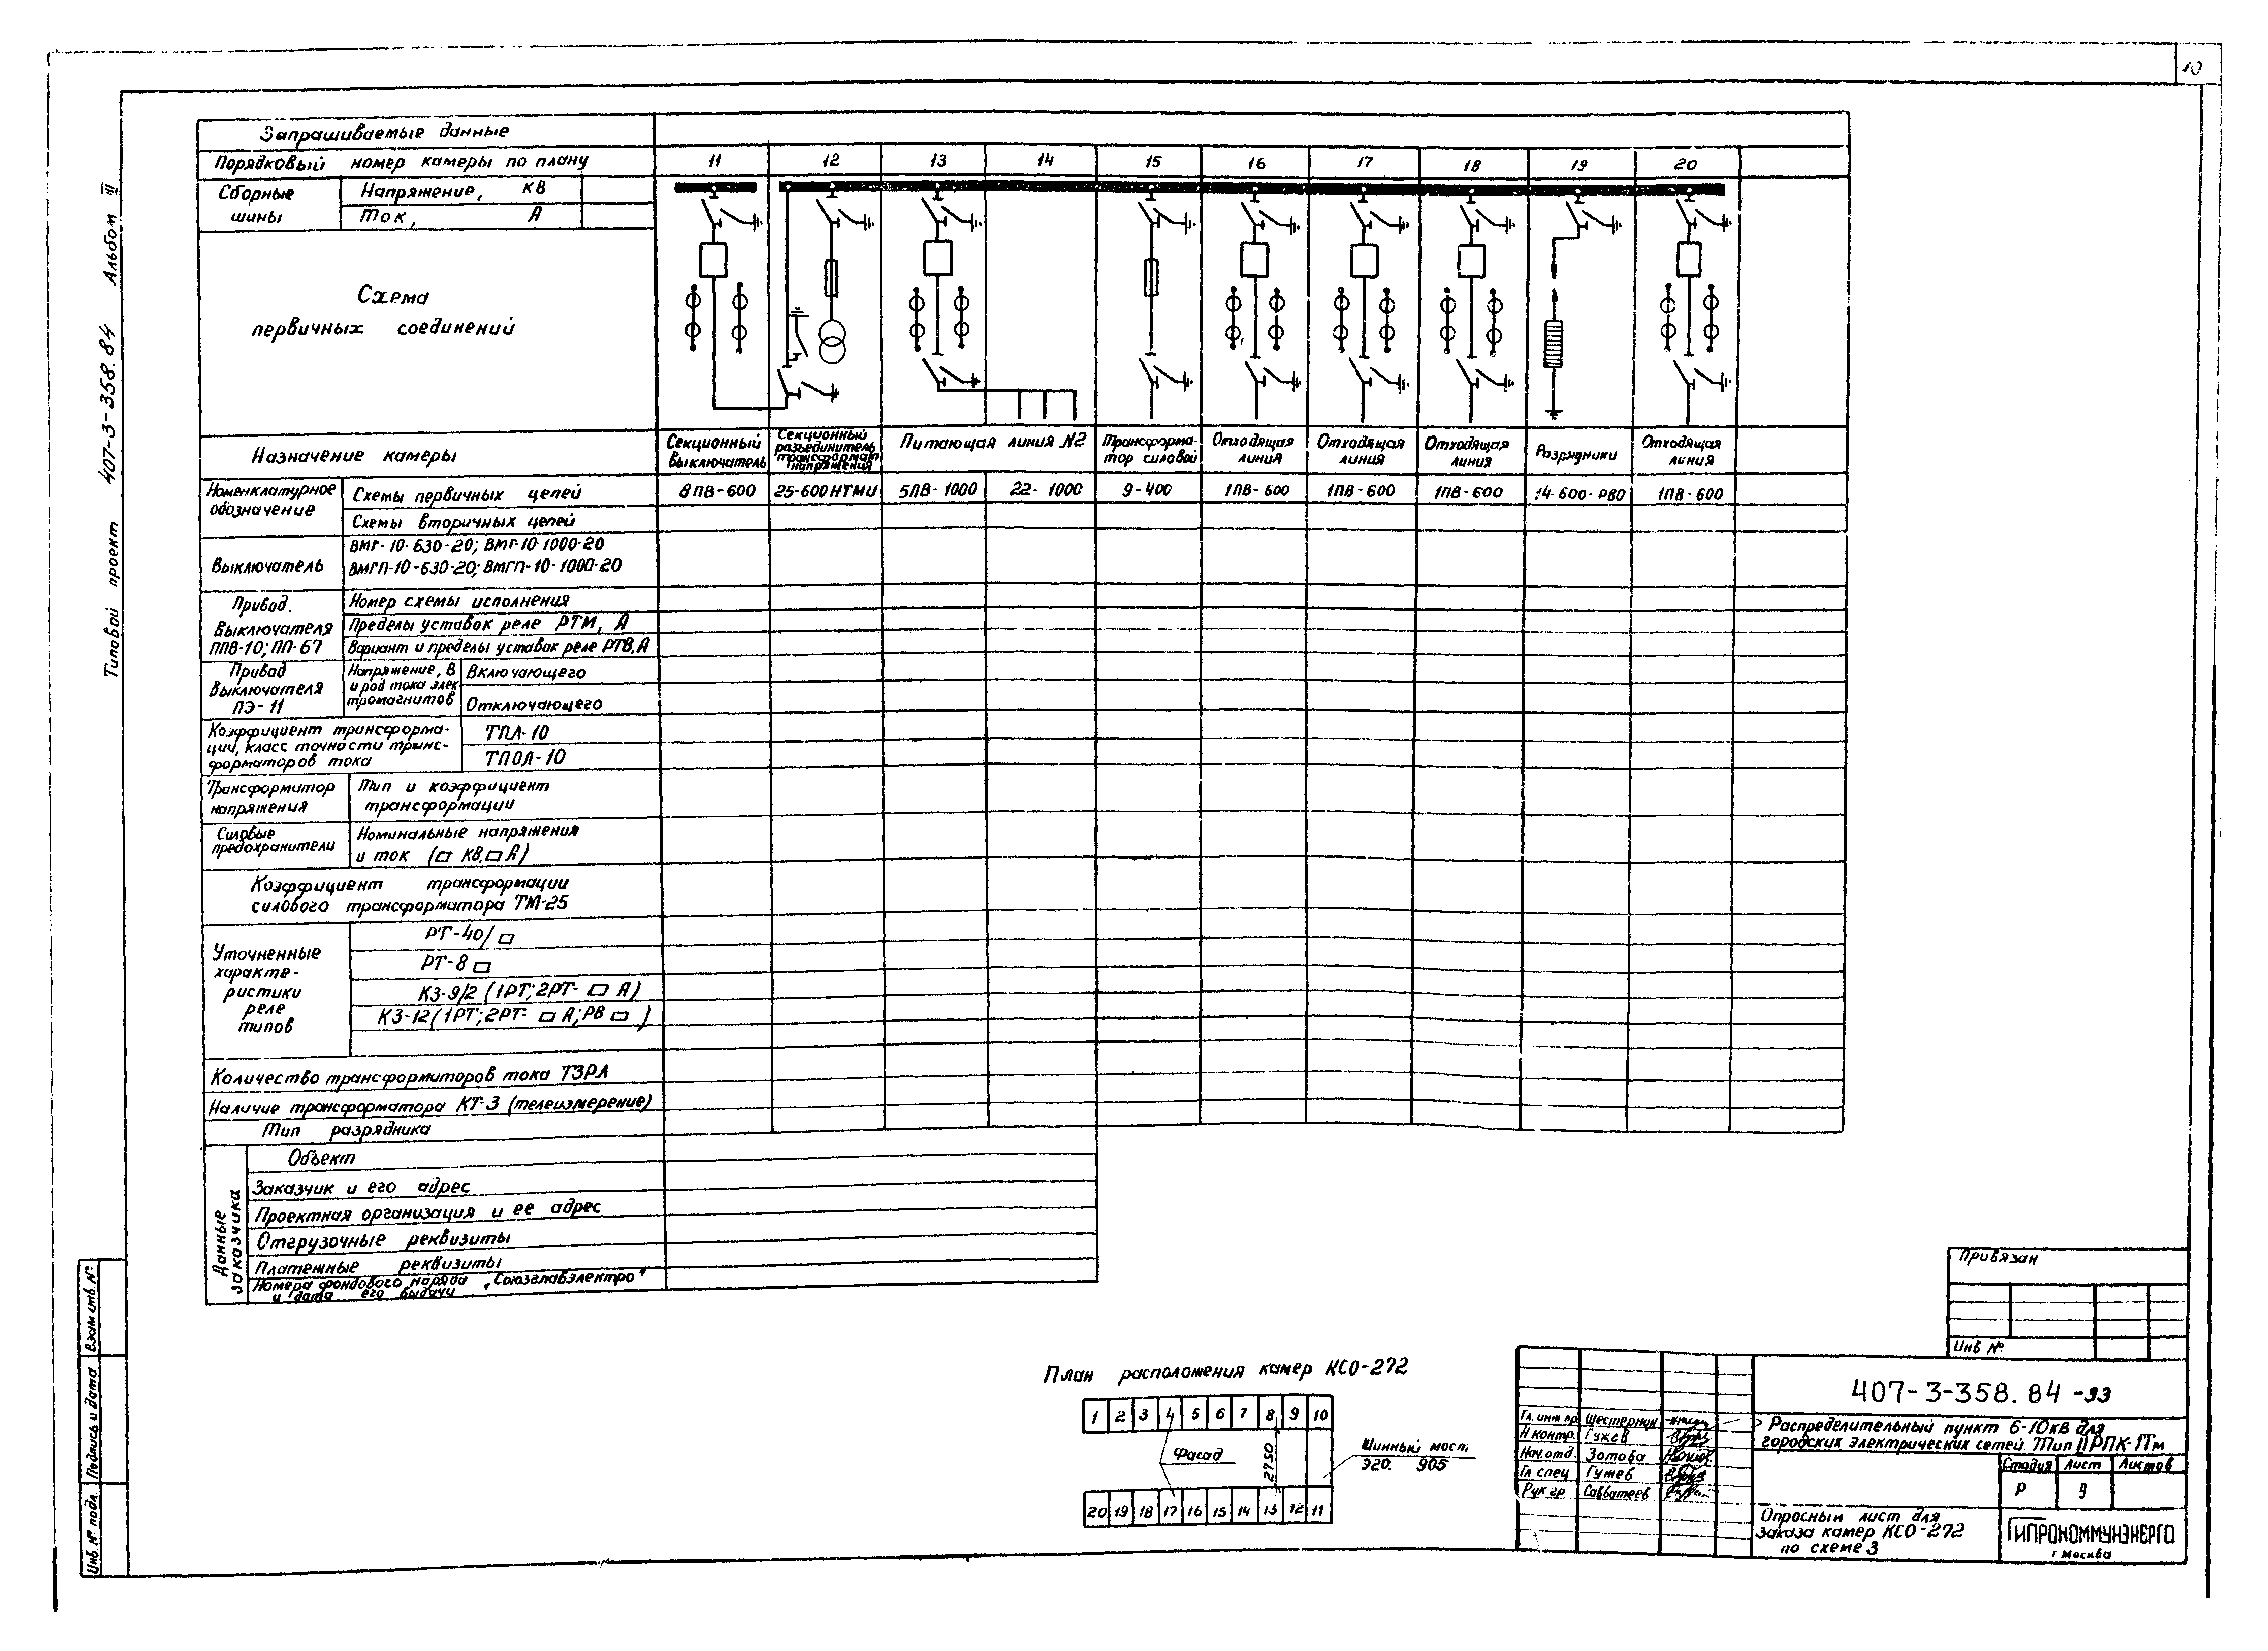 10
Типовой проект 407-3-358.84 Альбом III
Запрашиваемые данные
Порядковый номер камеры по плану 11 12 13 14 15 16 17 18 19 20
Сборные шины
Напряжение, кВ
Ток, А
Схема
первичных соединений
Назначение камеры
Секционный выключатель
Секционный разъединитель трансформат напряжения
Питающая линия N2
Трансформа-
тор силовой
Отходящая линия
Отходящая линия
Отходящая линия
Разрядники
Отходящая линия
Номенклатурное обозначение
Схемы первичных цепей 8ПВ-600 25-600НТМИ 5ПВ-1000 22-1000 9-400 1ПВ-600 1ПВ-600 1ПВ-600 14-600-РВО 1ПВ-600
Схемы вторичных цепей
Выключатель
ВМГ-10-630-20; ВМГ-10-1000-20
ВМГП-10-630-20; ВМГП-10-1000-20
Привод
выключателя
ППВ-10; ПП-67
Номер схемы исполнения
Пределы уставок реле РТМ, А
Вариант и пределы уставок реле РТВ, А
Привод
выключателя
ПЭ-11
Напряжение, В
и род тока элек-
тромагнитов
Включающего
Отключающего
Коэффициент трансформа-
ции, класс точности транс-
форматоров тока
ТПЛ-10
ТПОЛ-10
Трансформатор
напряжения
Тип и коэффициент
трансформации
Силовые
предохранители
Номинальные напряжения
и ток (▭ кВ, ▭ А)
Коэффициент трансформации
силового трансформатора ТМ-25
Уточненные
характе-
ристики
реле
типов
РТ-40/▭
РТ-8▭
КЗ-9/2 (1РТ; 2РТ- ▭ А)
КЗ-12 (1РТ; 2РТ- ▭ А; РВ ▭ )
Количество трансформиторов тока ТЗРЛ
Наличие трансформатора КТ-3 (телеизмерение)
Тип разрядника
Данные
заказчика
Объект
Заказчик и его адрес
Проектная организация и ее адрес
Отгрузочные реквизиты
Платежные реквизиты
Номера фондового наряда „Союзглавэлектро"
и дата его выдачи
План расположения камер КСО-272
1 2 3 4 5 6 7 8 9 10
Фасад
2750
Шинный мост
Э20. 905
20 19 18 17 16 15 14 13 12 11
Привязан
Инв №
407-3-358.84 -ЭЭ
Гл. инж пр Шестернин
Н контр. Гужев
Нач.отд. Зотова
Гл спец Гужев
Рук.гр Савватеев
Распределительный пункт 6-10кв для
городских электрических сетей. Тип IIРПК-1Тм
Стадия Лист Листов
Р 9
Опросный лист для
заказа камер КСО-272
по схеме 3
ГИПРОКОММУНЭНЕРГО
г Москва
Инв № подл. Подпись и дата Взам инв. №